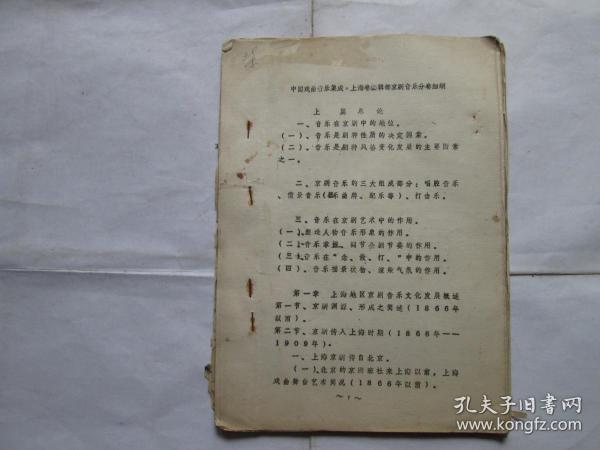 中国戏曲音乐集成·上海卷编辑部京剧音乐分卷细纲
上 篇 总 论
一、音乐在京剧中的地位。
（一）、音乐是剧种性质的决定因素。
（二）、音乐是剧种风格变化发展的主要因素
之一。
二、京剧音乐的三大组成部分：唱腔音乐
、情景音乐（器乐曲牌、配乐等）、打击乐。
三、音乐在京剧艺术中的作用。
（一）、塑造人物音乐形象的作用。
（二）、音乐掌握、调节全剧节奏的作用。
（三）、音乐在“念、做、打、”中的作用。
（四）、音乐描景状物、渲染气氛的作用。
第一章 上海地区京剧音乐文化发展概述
第一节、京剧渊源、形成之简述（1866年
以前）。
第二节、京剧传入上海时期（1866年——
1909年）。
一、上海京剧传自北京。
（一）、北京的京剧班社来上海以前，上海
戏曲舞台艺术简况（1866年以前）。
～1～
孔夫子旧书网
www.kongfz.com